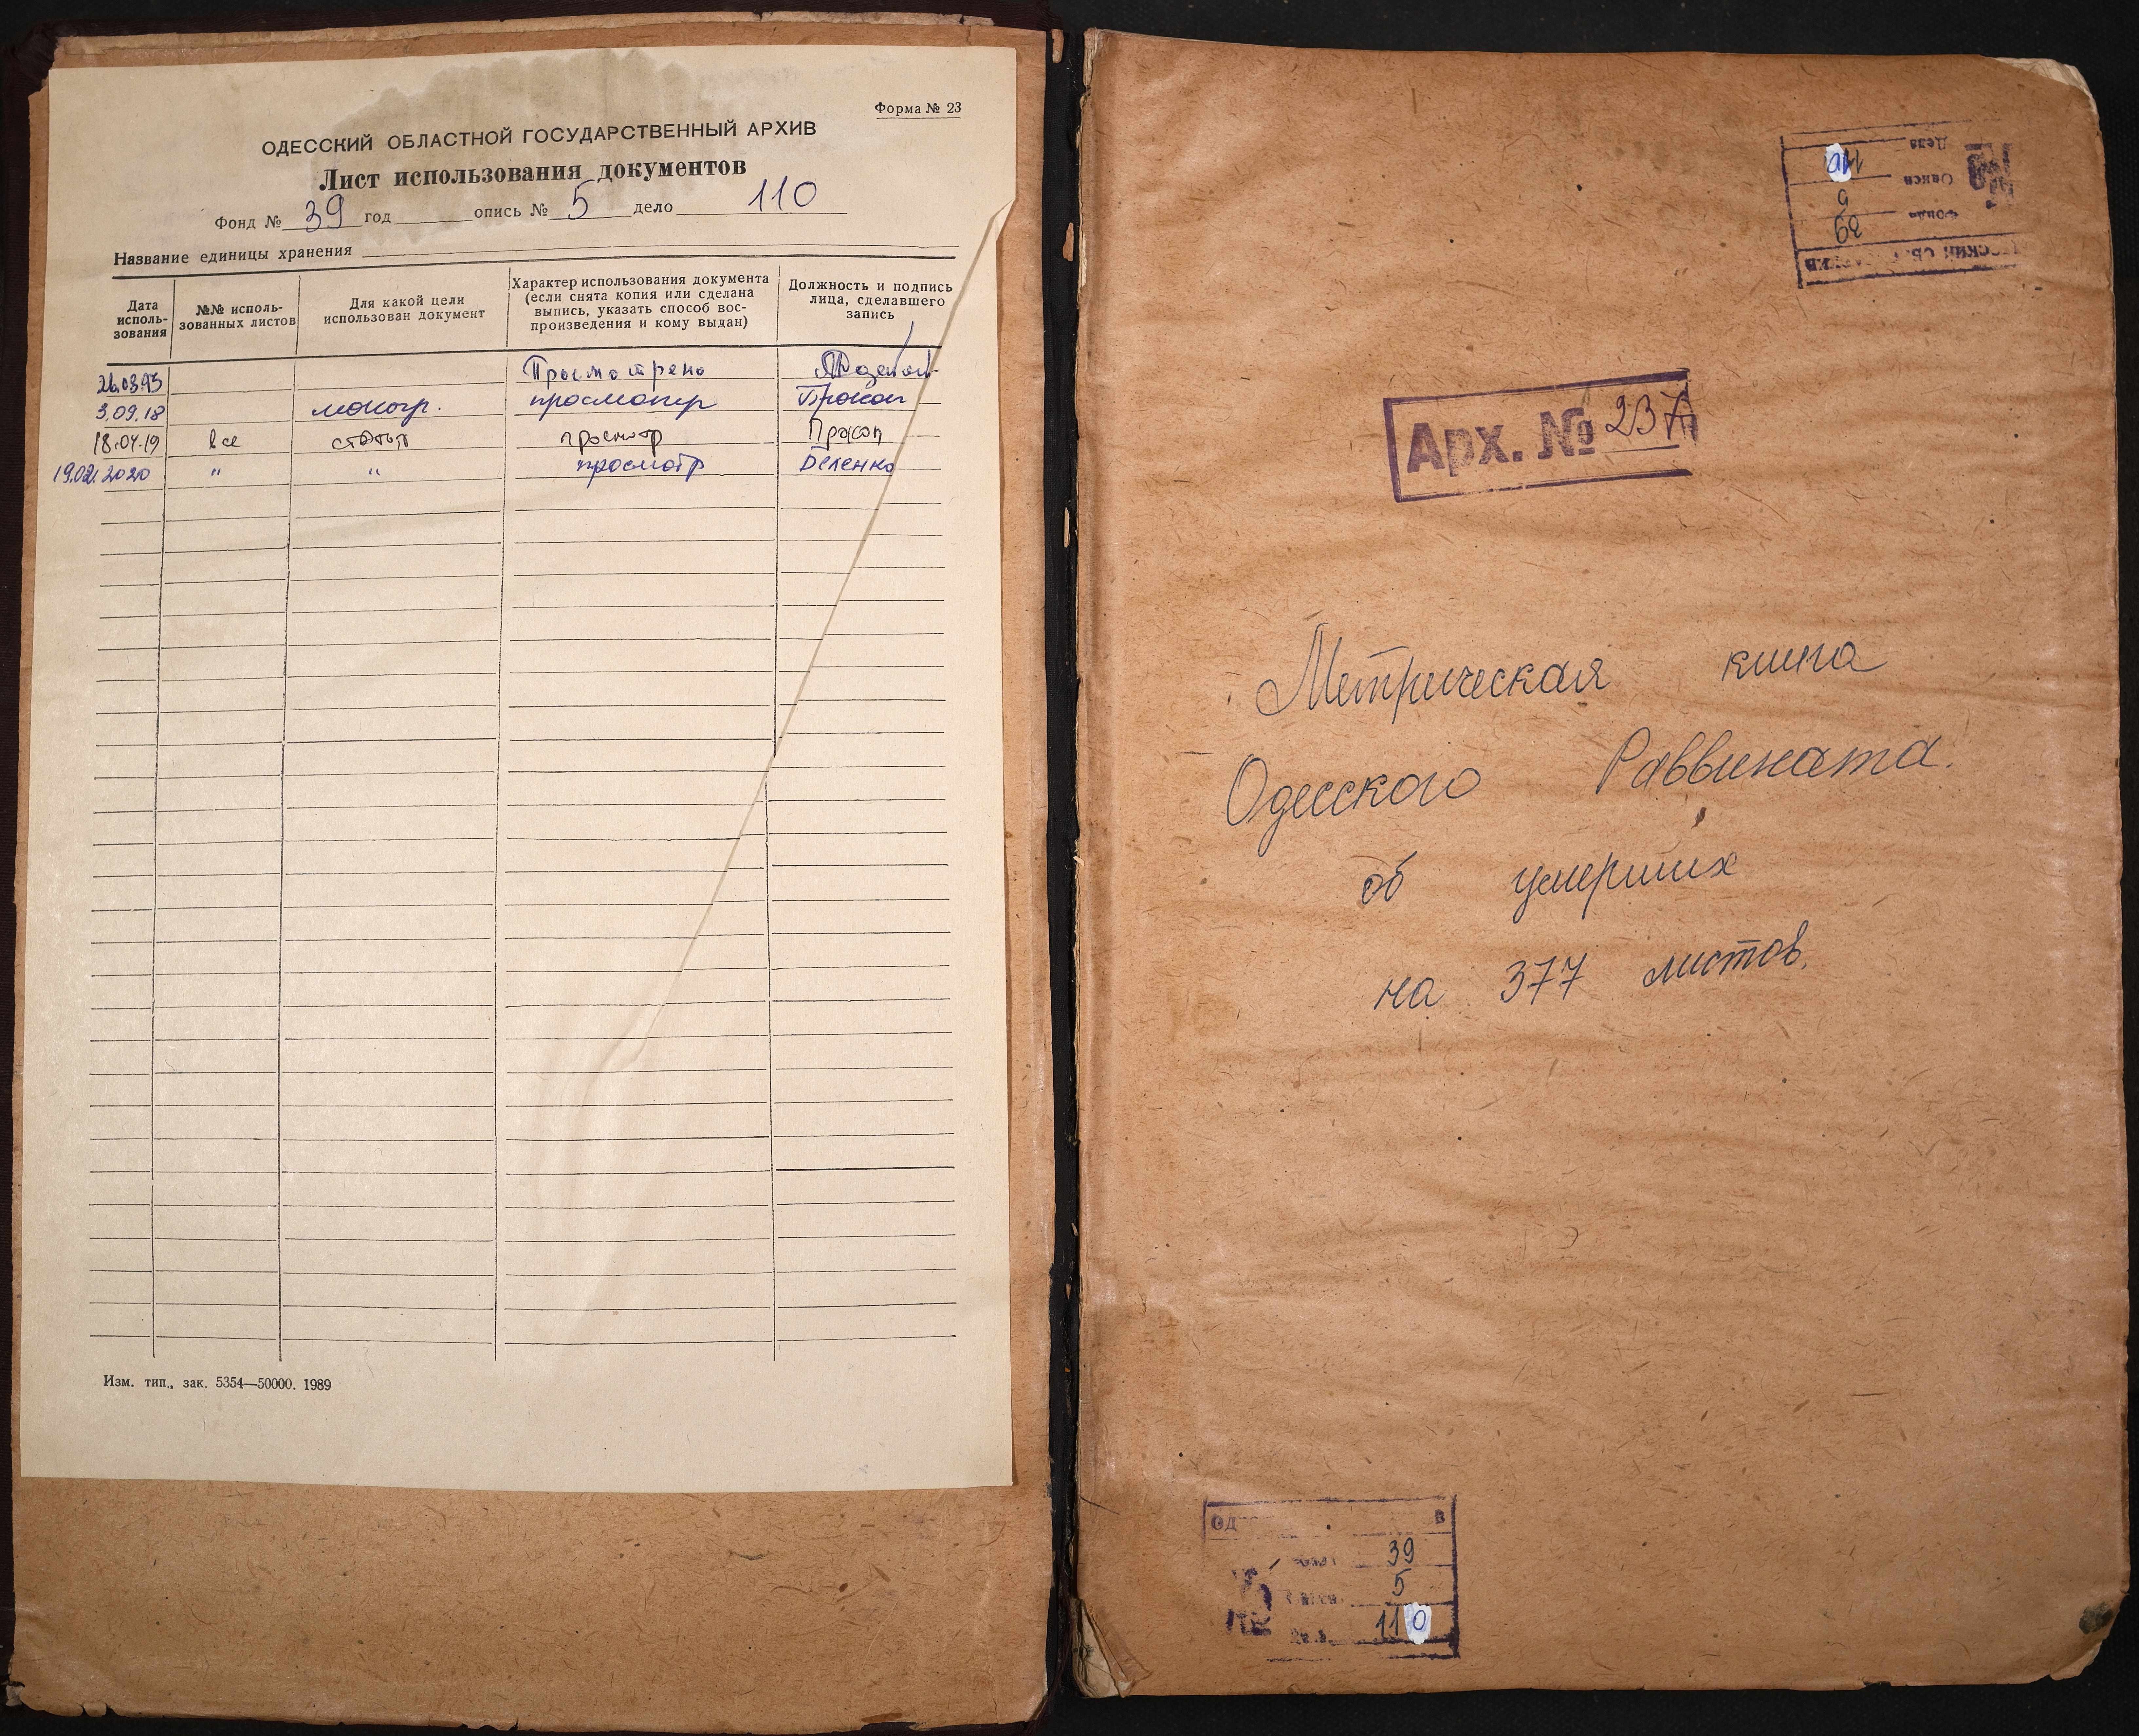 Форма № 23
ОДЕССКИЙ ОБЛАСТНОЙ ГОСУДАРСТВЕННЫЙ АРХИВ
Лист использования документов
Фонд № 39 год опись № 5 дело 110
Название единицы хранения
Дата исполь-
зования
№№ исполь-
зованных листов
Для какой цели
использован документ
Характер использования документа
(если снята копия или сделана
выпись, указать способ вос-
произведения и кому выдан)
Должность и подпись
лица, сделавшего
запись
Просмотрено
3.09.18 моногр. просмотр Прокоп
18.04.19 все статья просмотр Прокоп
19.02.2020 " " просмотр Деленко
Изм. тип., зак. 5354—50000. 1989
Арх. № 237
Метрическая книга
Одесского Раввината.
об умерших
на 377 листов.
39
5
110
39
5
110